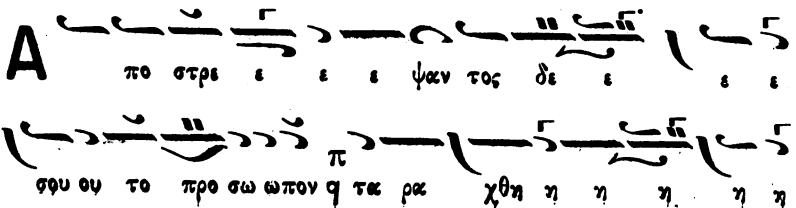 Α πο στρε ε ε ε ψαν τος δε ε ε ε
σου ου το προ σω ωπον π q τα ρα χθη η η η η η